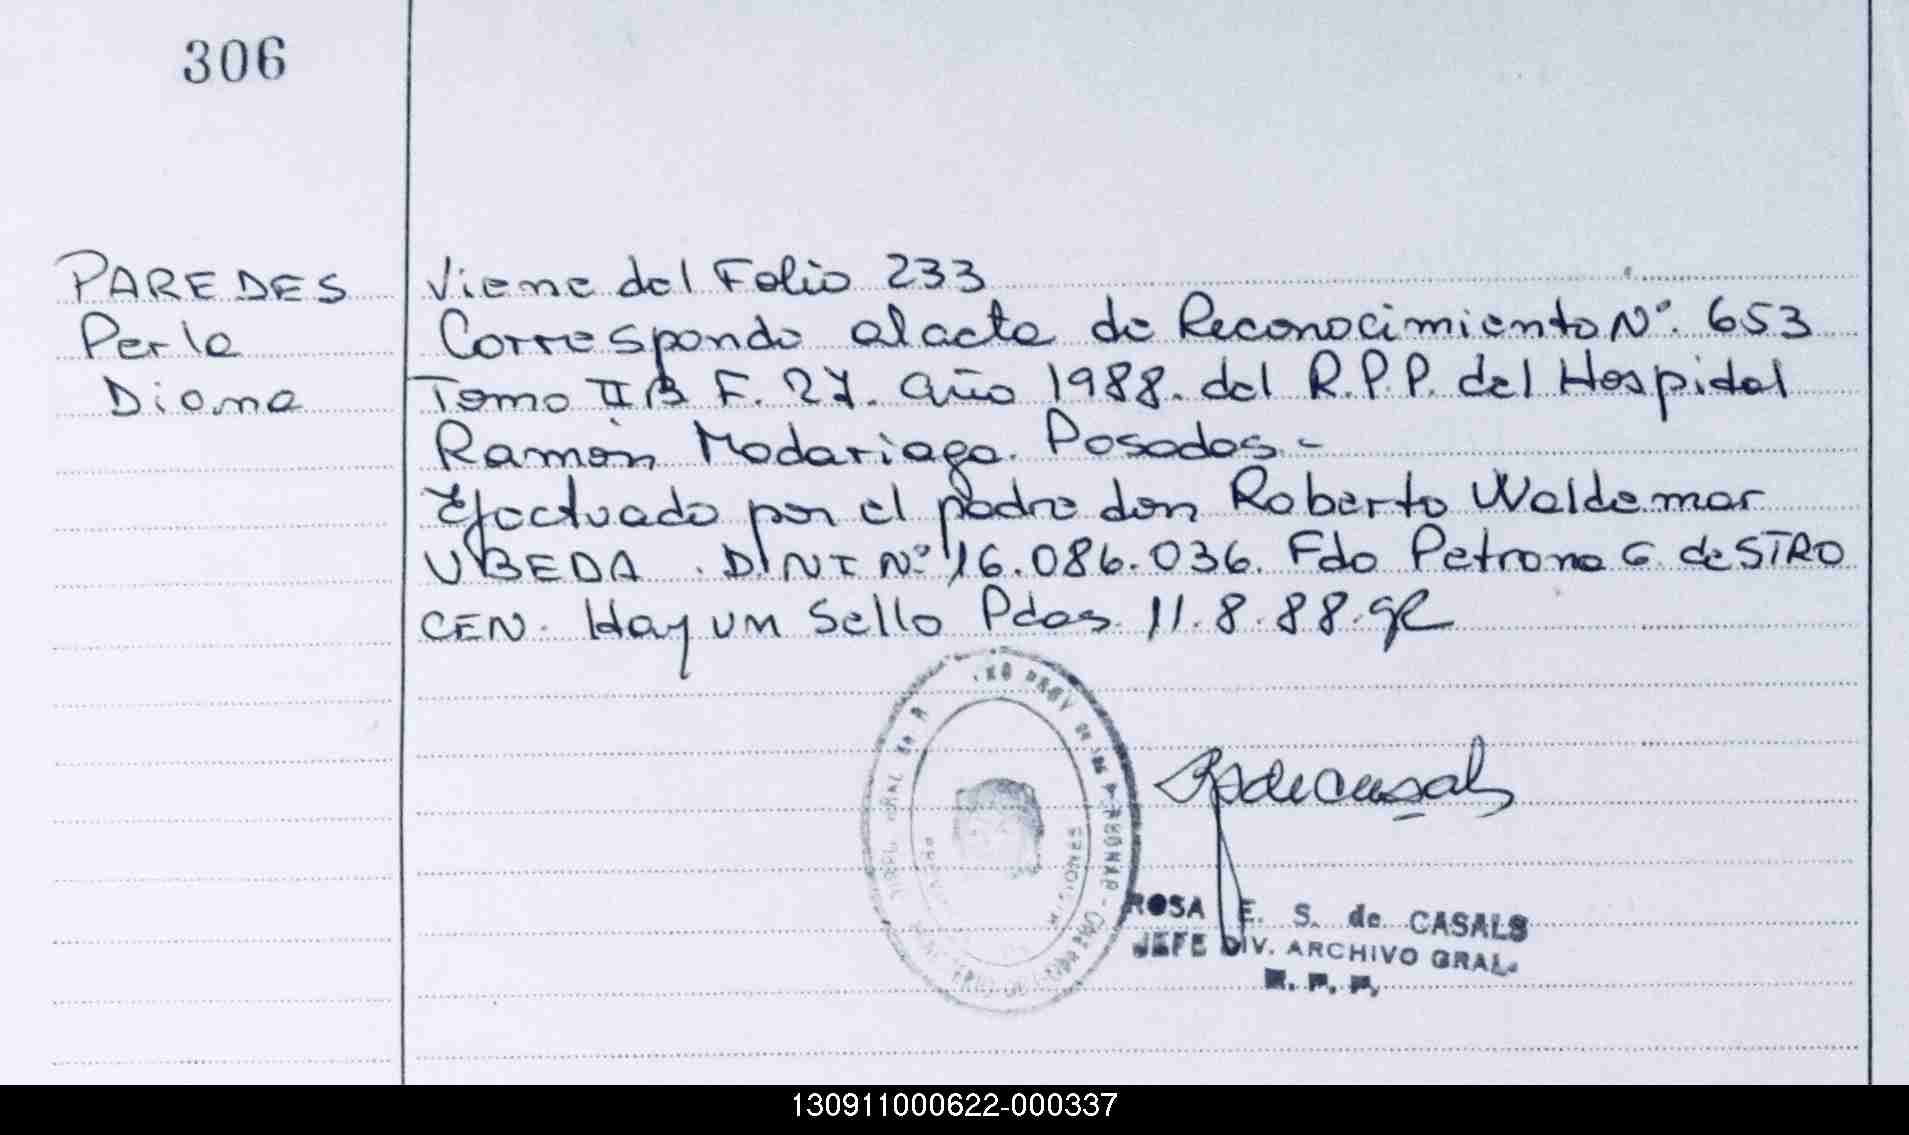 306
PAREDES
Perla
Diana
Viene del Folio 233
Corresponde al acta de Reconocimiento Nº. 653
Tomo II B F. 27. Año 1988. del R.P.P. del Hospital
Ramón Madariaga. Posadas.-
Efectuado por el padre don Roberto Waldemar
UBEDA. DNI Nº 16.086.036. Fdo Petrona G. de STRO
CEN. Hay un Sello Pdas. 11.8.88.
MISIONES
ROSA E. S. de CASALS
JEFE DIV. ARCHIVO GRAL.
R. P. P.
130911000622-000337